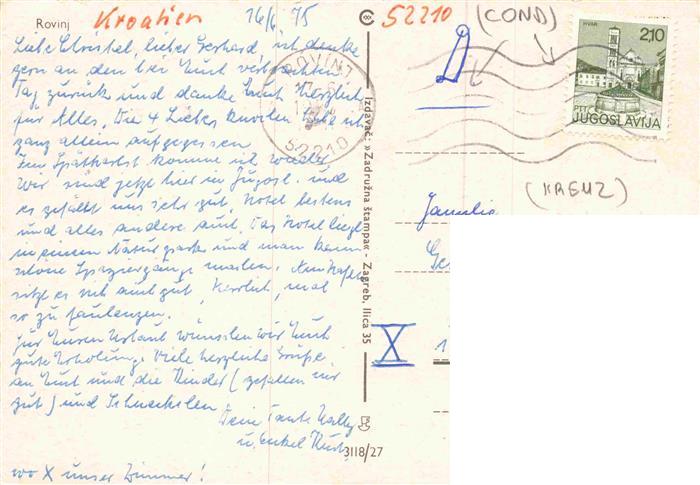 Rovinj Kroatien 16/6 75
52210 (COND)
Liebe Christel, lieber Gerhard, ich denke
gern an den bei Euch verbrachten
Tag zurück und danke Euch herzlich
für Alles. Die 4 Liebes habe ich
ganz allein aufgegessen.
Im Spätherbst komme ich wieder.
Wir sind jetzt hier in Jugosl. und
es gefällt uns sehr gut, Hotel bestens
und alles andere auch. Das Hotel liegt
in einem Naturpark und man kann
schöne Spaziergänge machen. Am Hafen
sitzt es sich auch gut, herrlich, mal
so zu faulenzen.
Für Euren Urlaub wünschen wir Euch
gute Erholung. Viele herzliche Grüße
an Euch und die Kinder (gefallen mir
gut) und
Deine Tante
u. Onkel
wo X unser Zimmer!
ROVINJ
52210
Izdavač: »Zadružna štampa« - Zagreb, Ilica 35
3118/27
D
HVAR
2,10
PTT
JUGOSLAVIJA
(KREUZ)
Familie
Ge
X 1